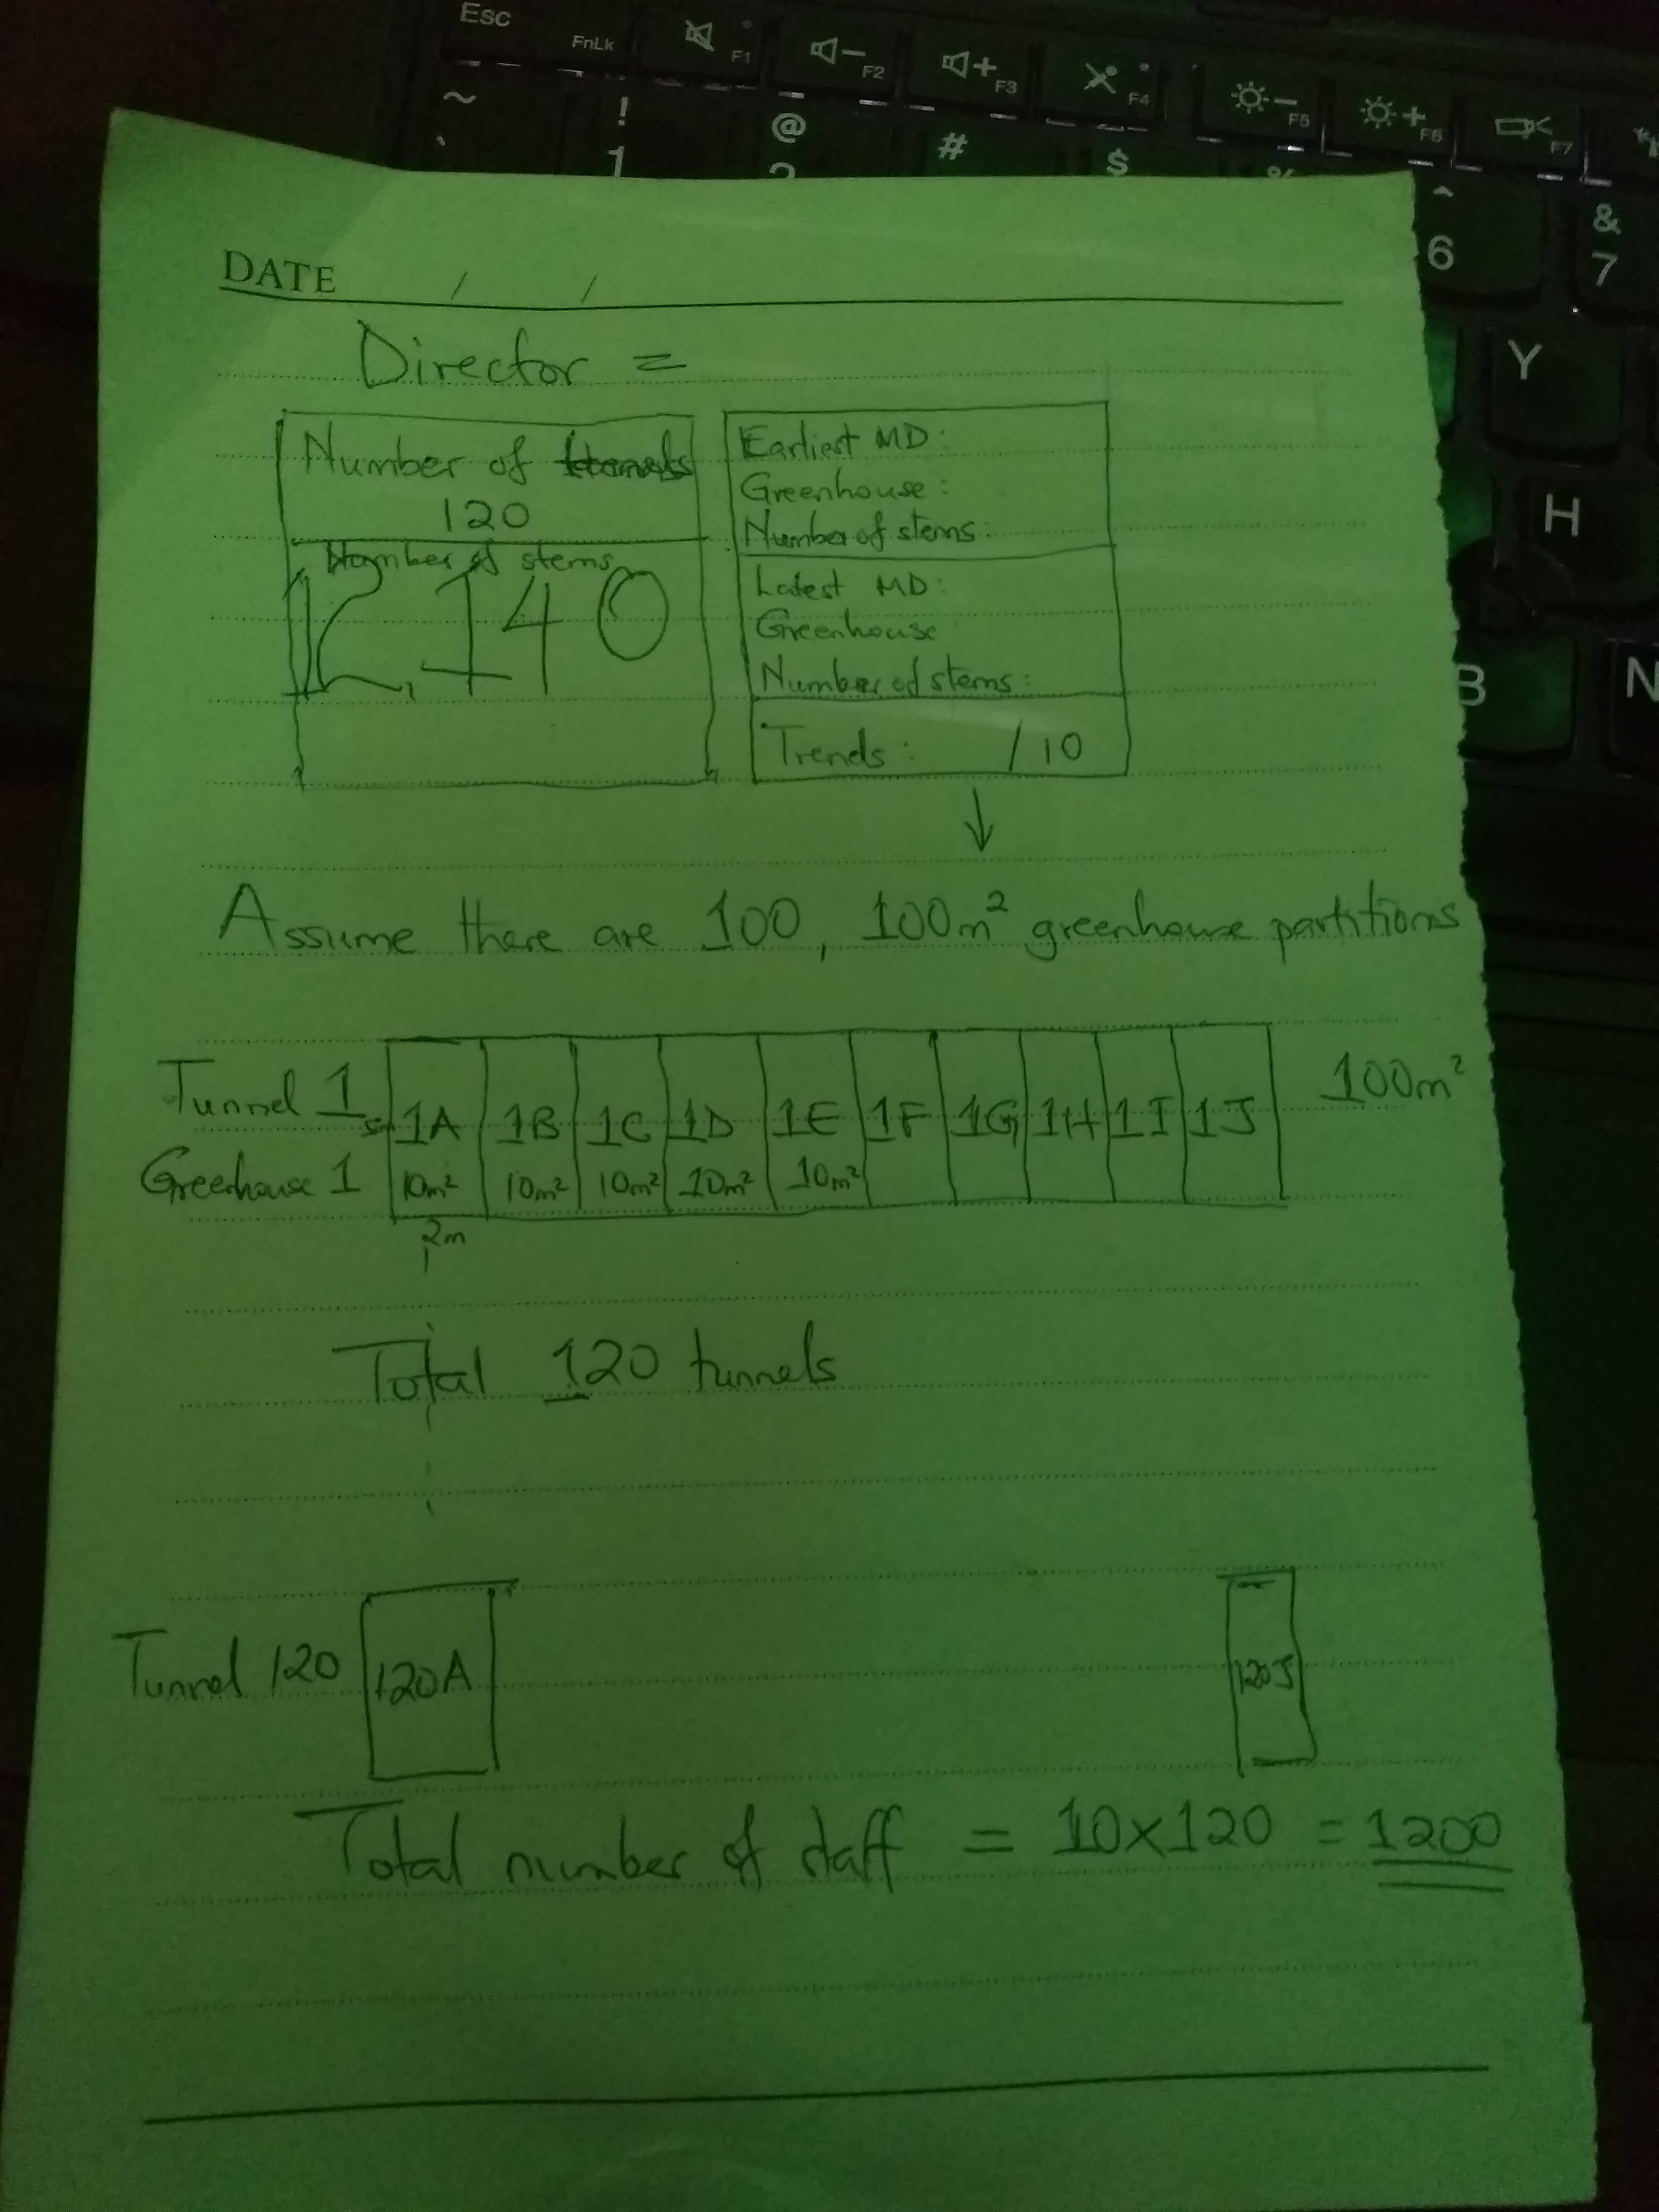 Esc FnLk F1 F2 F3 F4 F5 F6 F7
~ ! @ # $ % ^ &
` 1 2 6 7
Y
H
B N
DATE / /
Director =
Number of
120
Number of stems
12,140
Earliest MD:
Greenhouse:
Number of stems:
Latest MD:
Greenhouse
Number of stems:
Trends: /10
Assume there are 100, 100m² greenhouse partitions
Tunnel 1
Greenhouse 1
1A 1B 1C 1D 1E 1F 1G 1H 1I 1J
100m²
10m² 10m² 10m² 10m² 10m²
2m
Total 120 tunnels
Tunnel 120
120A
120J
Total number of staff = 10x120 = 1200